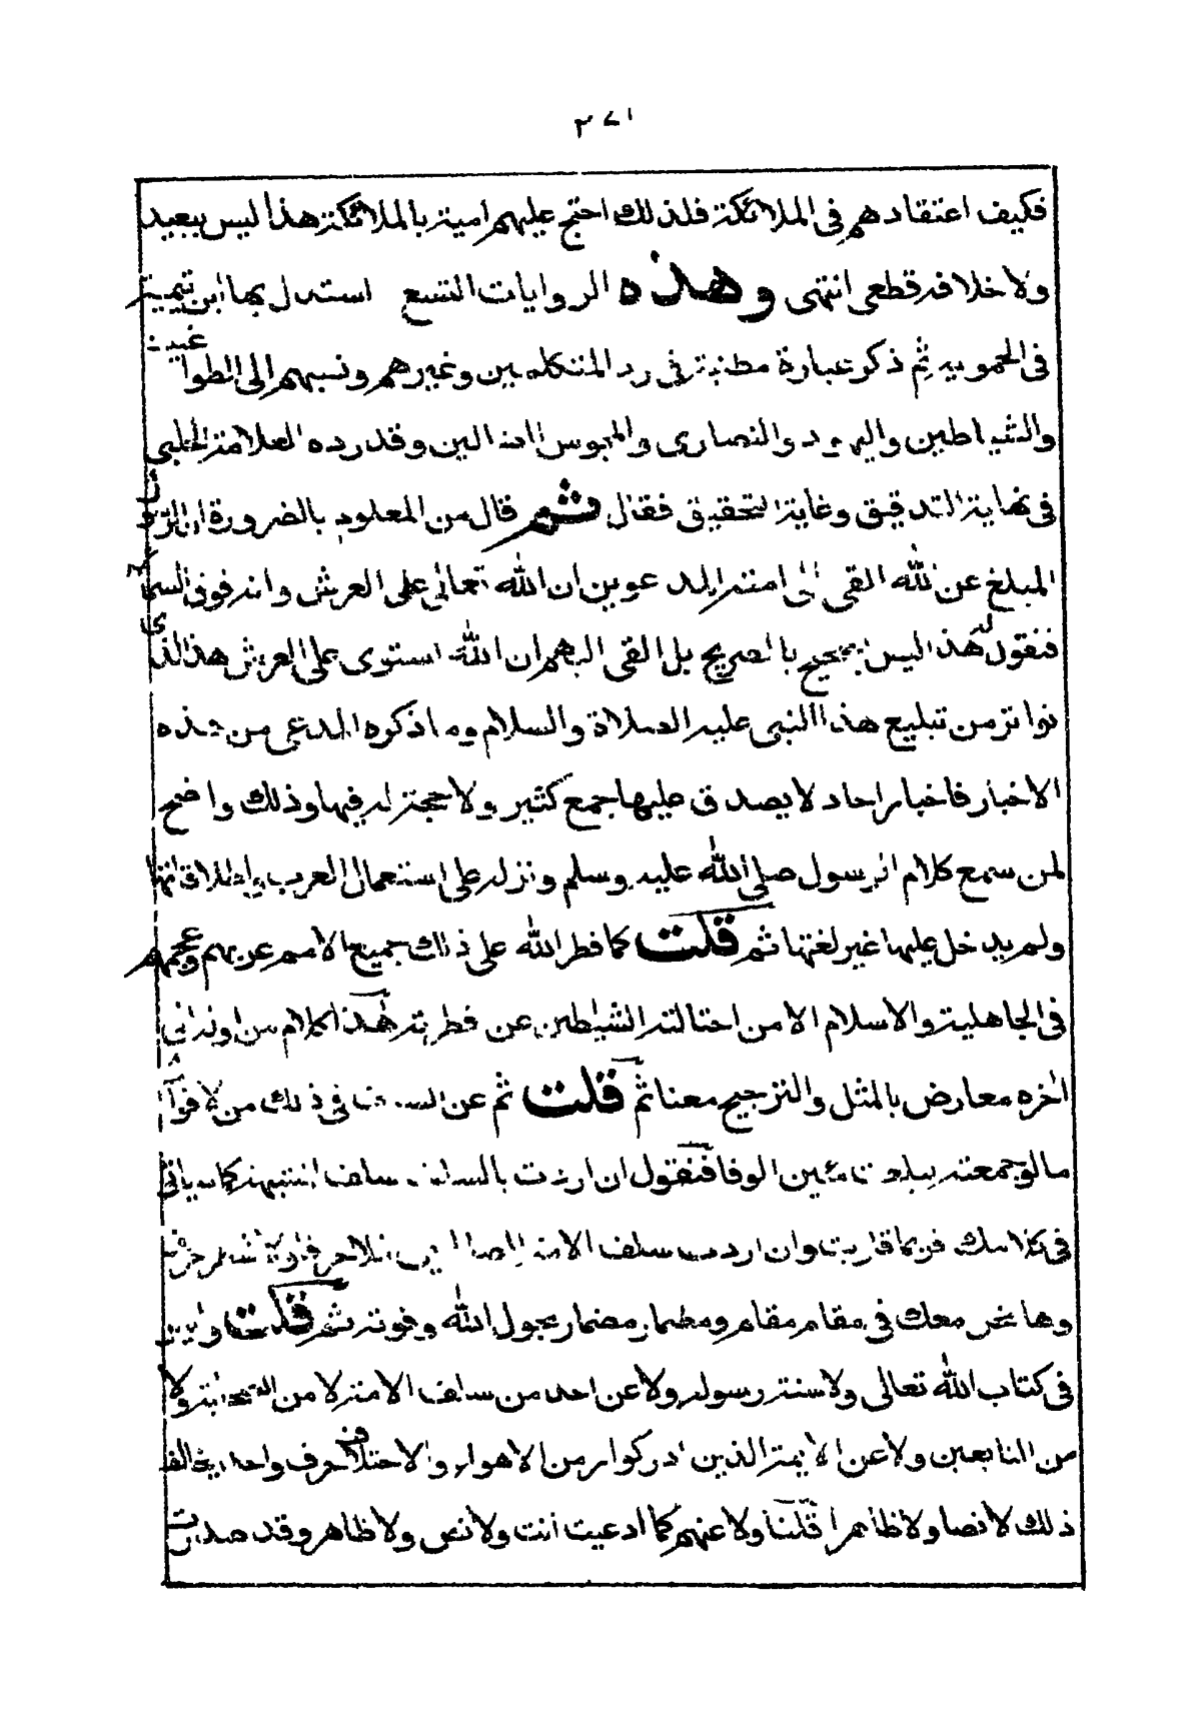 ٢٧١
فكيف اعتقادهم فى الملائكة فلذلك احتج عليهم امية بالملائكة هذا ليس ببعيد
ولاخلافه قطعى انتهى وهذه الروايات التسع استدل بها ابن تيمية
فى الحمويه ثم ذكر عبارة مطنبة فى رد المتكلمين وغيرهم ونسبهم الى الطواغيت
والشياطين واليهود والنصارى والمجوس الضالين وقد رده العلامة الحلبى
فى نهاية التدقيق وغاية التحقيق فقال ثم قال من المعلوم بالضرورة ان الرسول
المبلغ عن الله القى الى امته المدعوين ان الله تعالى على العرش وانه فوق السماء
فنقول له هذا ليس بصحيح بالصريح بل القى اليهم ان الله استوى على العرش هذا الذى
تواتر من تبليغ هذا النبى عليه الصلاة والسلام وما ذكره المدعى من هذه
الاخبار فاخبار احاد لا يصدق عليها جمع كثير ولا حجة له فيها وذلك واضح
لمن سمع كلام الرسول صلى الله عليه وسلم ونزله على استعمال العرب واطلاقاتها
ولم يدخل عليها غير لغتها ثم قلت كما فطر الله على ذلك جميع الامم عربهم وعجمهم
فى الجاهلية والاسلام الا من احتالته الشياطين عن فطرته هذا كلام من اوله الى
اخره معارض بالمثل والترجيح معنا ثم قلت ثم عن السلف فى ذلك من الاقوال
مالو جمعته بلغت مائين الوفا فنقول ان اردت بالسلف سلف المشبهة كما سياتى
فى كلامك فربما قاربت وان اردت سلف الامة الصالحين فلا حرفا ولا شطر حرف
وها نحن معك فى مقام مقام ومضمار مضمار بحول الله وقوته ثم قلت وليس
فى كتاب الله تعالى ولا سنة رسوله ولا عن احد من سلف الامة لا من الصحابة ولا
من التابعين ولا عن الايمة الذين ادركوا زمن الاهواء والاختلاف حرف واحد يخالف
ذلك لا نصا ولا ظاهرا قلنا ولا عنهم كما ادعيت انت ولا نص ولا ظاهر وقد صدرت